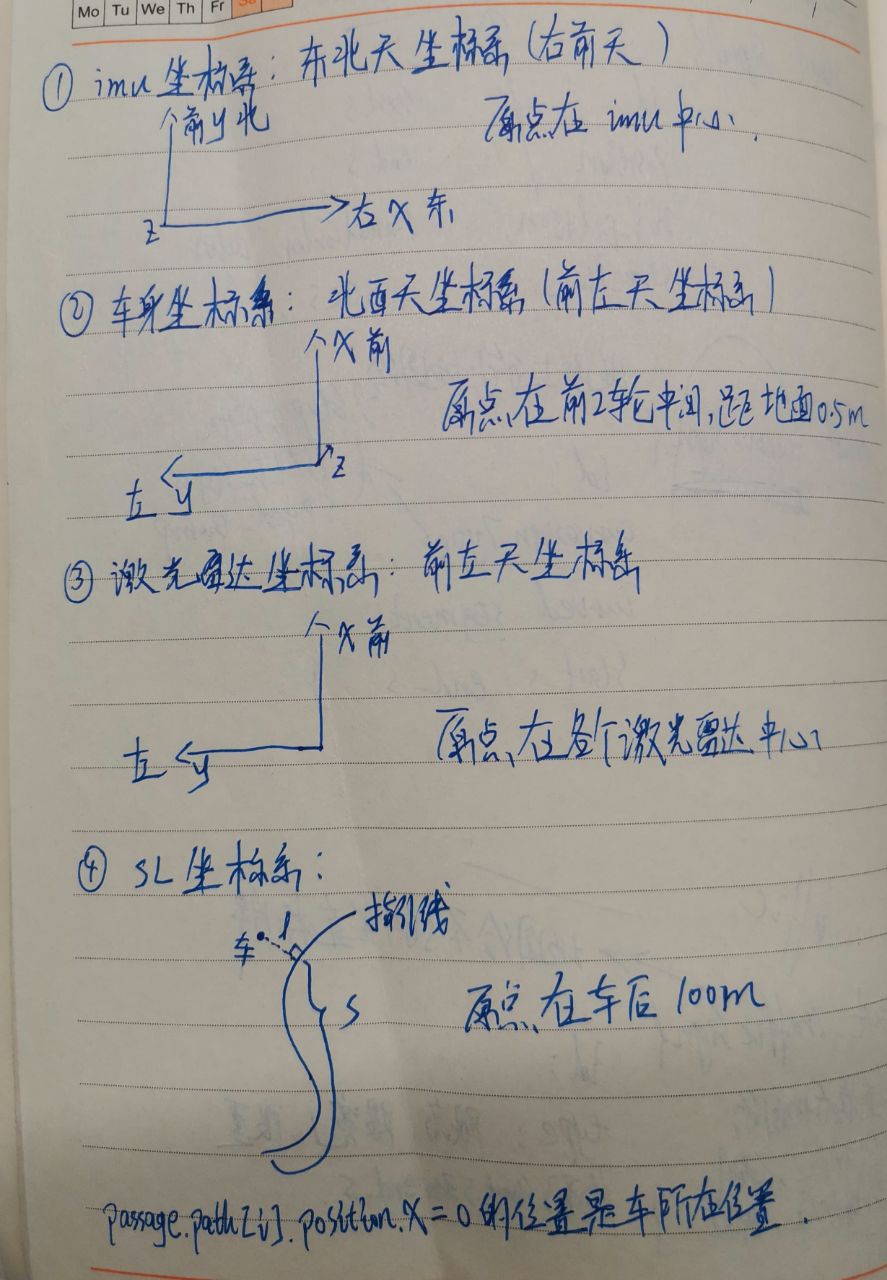 Mo Tu We Th Fr Sa
① imu坐标系：东北天坐标系（右前天）
前y北
原点在imu中心.
z
右x东
② 车身坐标系：北西天坐标系（前左天坐标系）
x前
原点在前2轮中间,距地面0.5m
左 y z
③ 激光雷达坐标系：前左天坐标系
x前
原点在各个激光雷达中心
左 y
④ SL坐标系：
指引线
车 l
原点在车后100m
S
passage.path[i].position.x=0的位置是车所在位置.